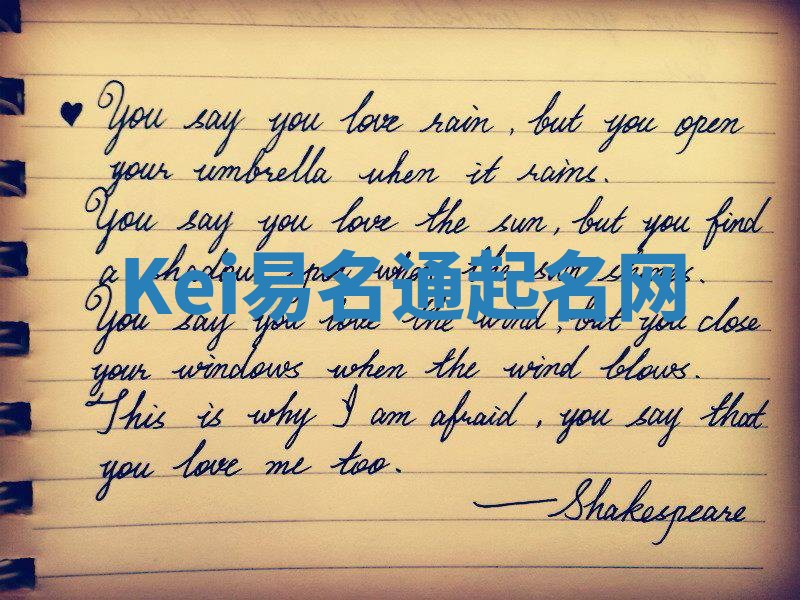 ♥ You say you love rain, but you open
your umbrella when it rains.
You say you love the sun, but you find
a shadow spot when the sun shines.
Kei易名通起名网
You say you love the wind, but you close
your windows when the wind blows.
This is why I am afraid, you say that
you love me too.
—Shakespeare